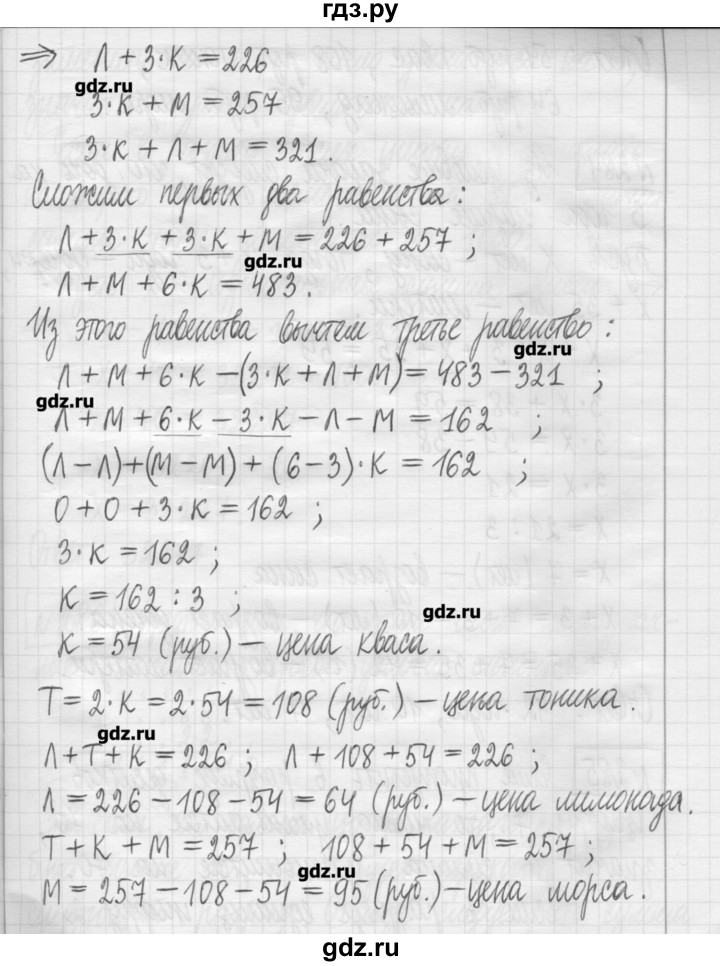 гдз.ру
⇒ Л + 3·К = 226
gdz.ru
3·К + М = 257
3·К + Л + М = 321.
Сложим первых два равенства:
Л + 3·К + 3·К + М = 226 + 257 ;
gdz.ru
Л + М + 6·К = 483.
Из этого равенства вычтем третье равенство:
gdz.ru
Л + М + 6·К – (3·К + Л + М) = 483 – 321 ;
gdz.ru
Л + М + 6·К – 3·К – Л – М = 162 ;
(Л – Л) + (М – М) + (6 – 3)·К = 162 ;
0 + 0 + 3·К = 162 ;
3·К = 162 ;
К = 162 : 3 ;
gdz.ru
К = 54 (руб.) – цена кваса.
Т = 2·К = 2·54 = 108 (руб.) – цена тоника.
gdz.ru
Л + Т + К = 226 ; Л + 108 + 54 = 226 ;
Л = 226 – 108 – 54 = 64 (руб.) – цена лимонада.
Т + К + М = 257 ; 108 + 54 + М = 257 ;
gdz.ru
М = 257 – 108 – 54 = 95 (руб.) – цена морса.
gdz.ru